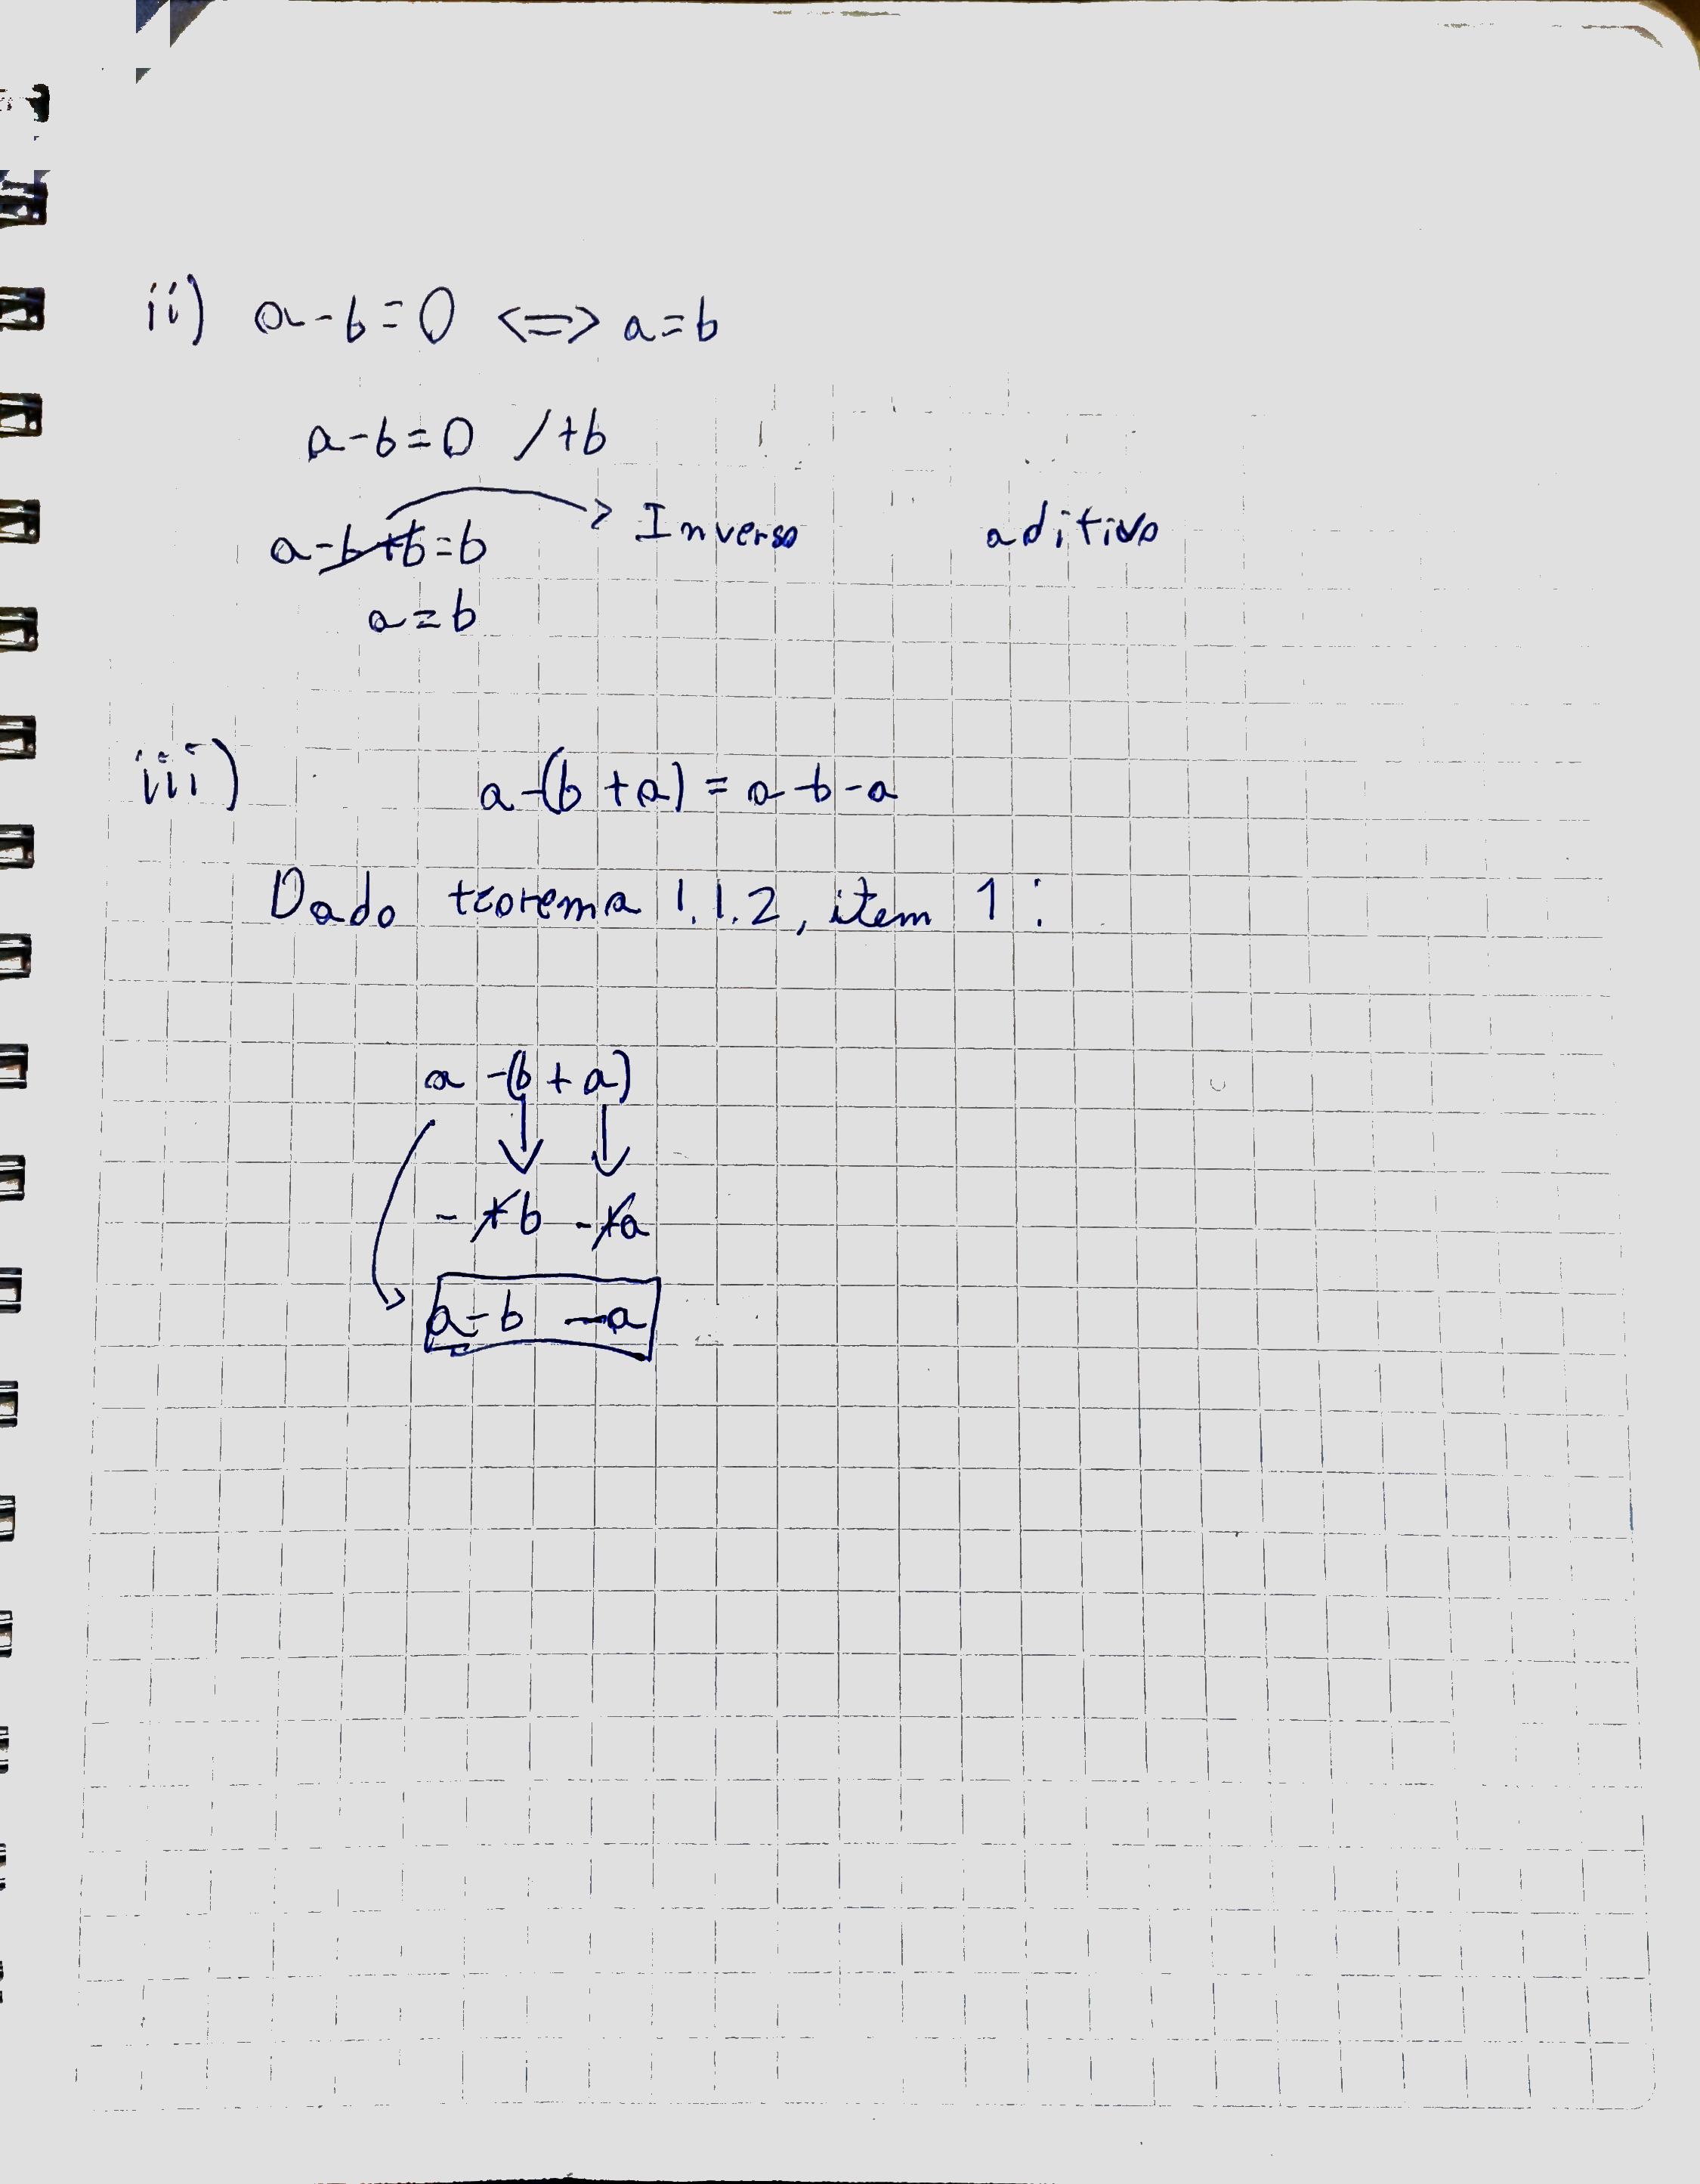 ii) a-b=0 <=> a=b
a-b=0 /+b
a-b+b=b → Inverso aditivo
a=b
iii) a-(b+a)=a-b-a
Dado teorema 1.1.2, item 1:
a -(b+a)
-+b -+a
a-b -a